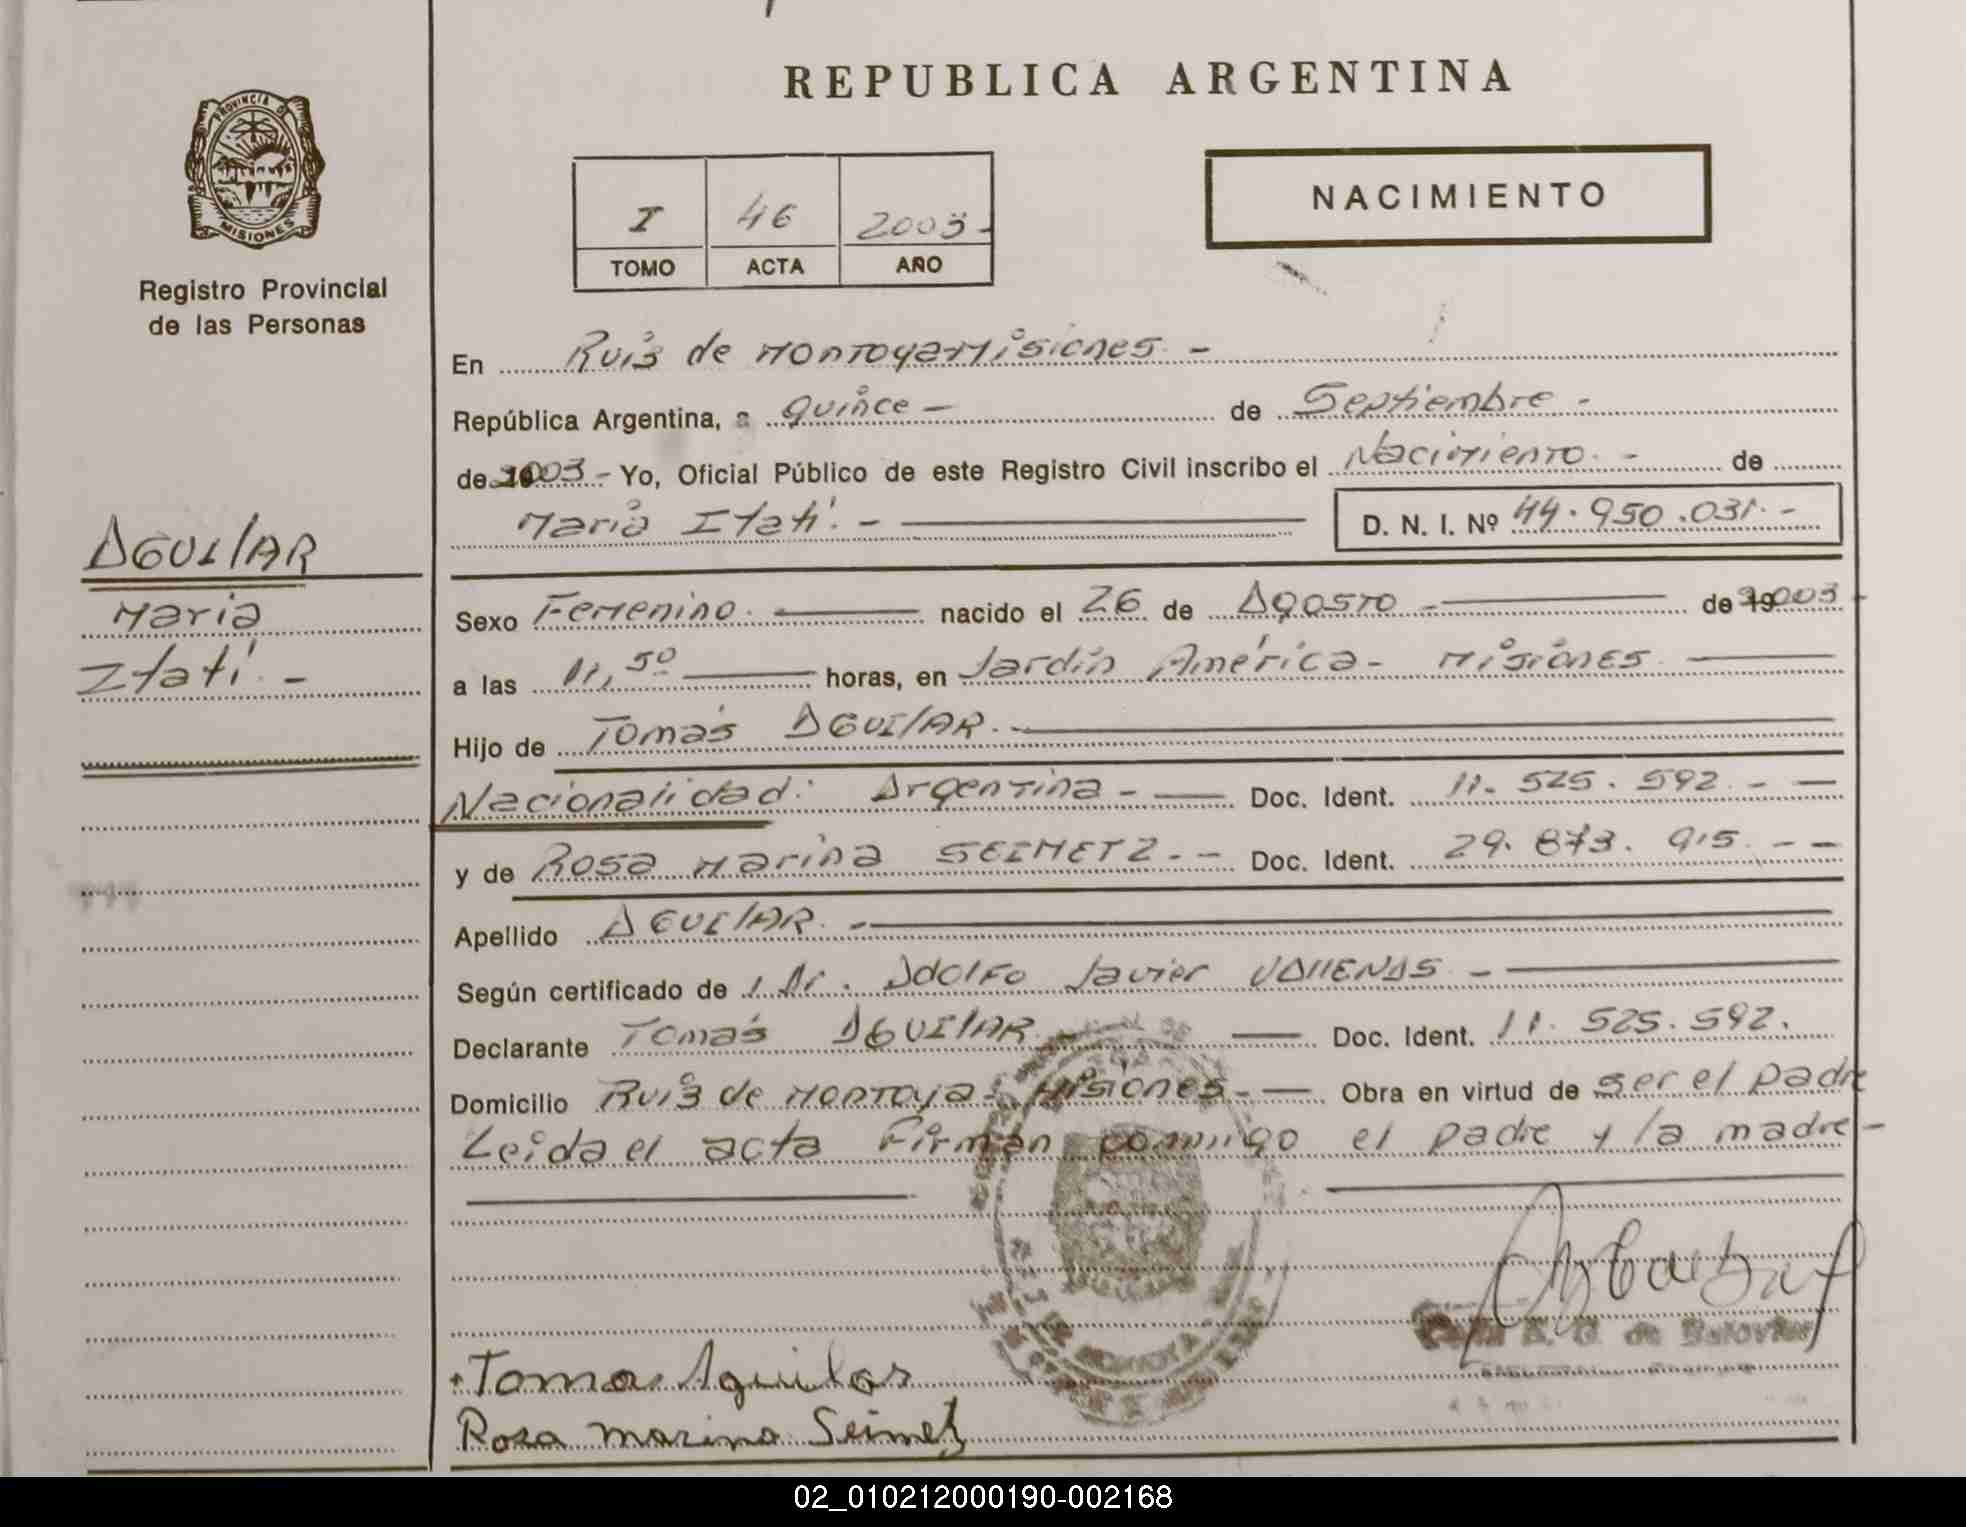 REPUBLICA ARGENTINA
PROVINCIA DE
MISIONES
Registro Provincial
de las Personas
I 46 2003-
TOMO ACTA AÑO
NACIMIENTO
En Ruiz de Montoya-Misiones. -
República Argentina, a quince - de Septiembre -
de 2003 - Yo, Oficial Público de este Registro Civil inscribo el Nacimiento. - de
María Itatí. - D. N. I. Nº 44.950.031. -
AGUILAR
María
Itatí. -
Sexo Femenino. nacido el 26 de Agosto - de 2003 -
a las 11,50 horas, en Jardín América - Misiones.
Hijo de Tomás AGUILAR. -
Nacionalidad: Argentina - Doc. Ident. 11. 525. 592. - -
y de Rosa Marina SEIMETZ. - - Doc. Ident. 29. 873. 915. - -
Apellido AGUILAR. -
Según certificado de / Dr. Adolfo Javier VALLENAS -
Declarante Tomás AGUILAR - Doc. Ident. 11. 525. 592.
Domicilio Ruiz de Montoya - Misiones. - Obra en virtud de ser el padre
Leída el acta firman conmigo el padre y la madre -
Tomas Aguilar
Rosa marina Seimetz
02_010212000190-002168